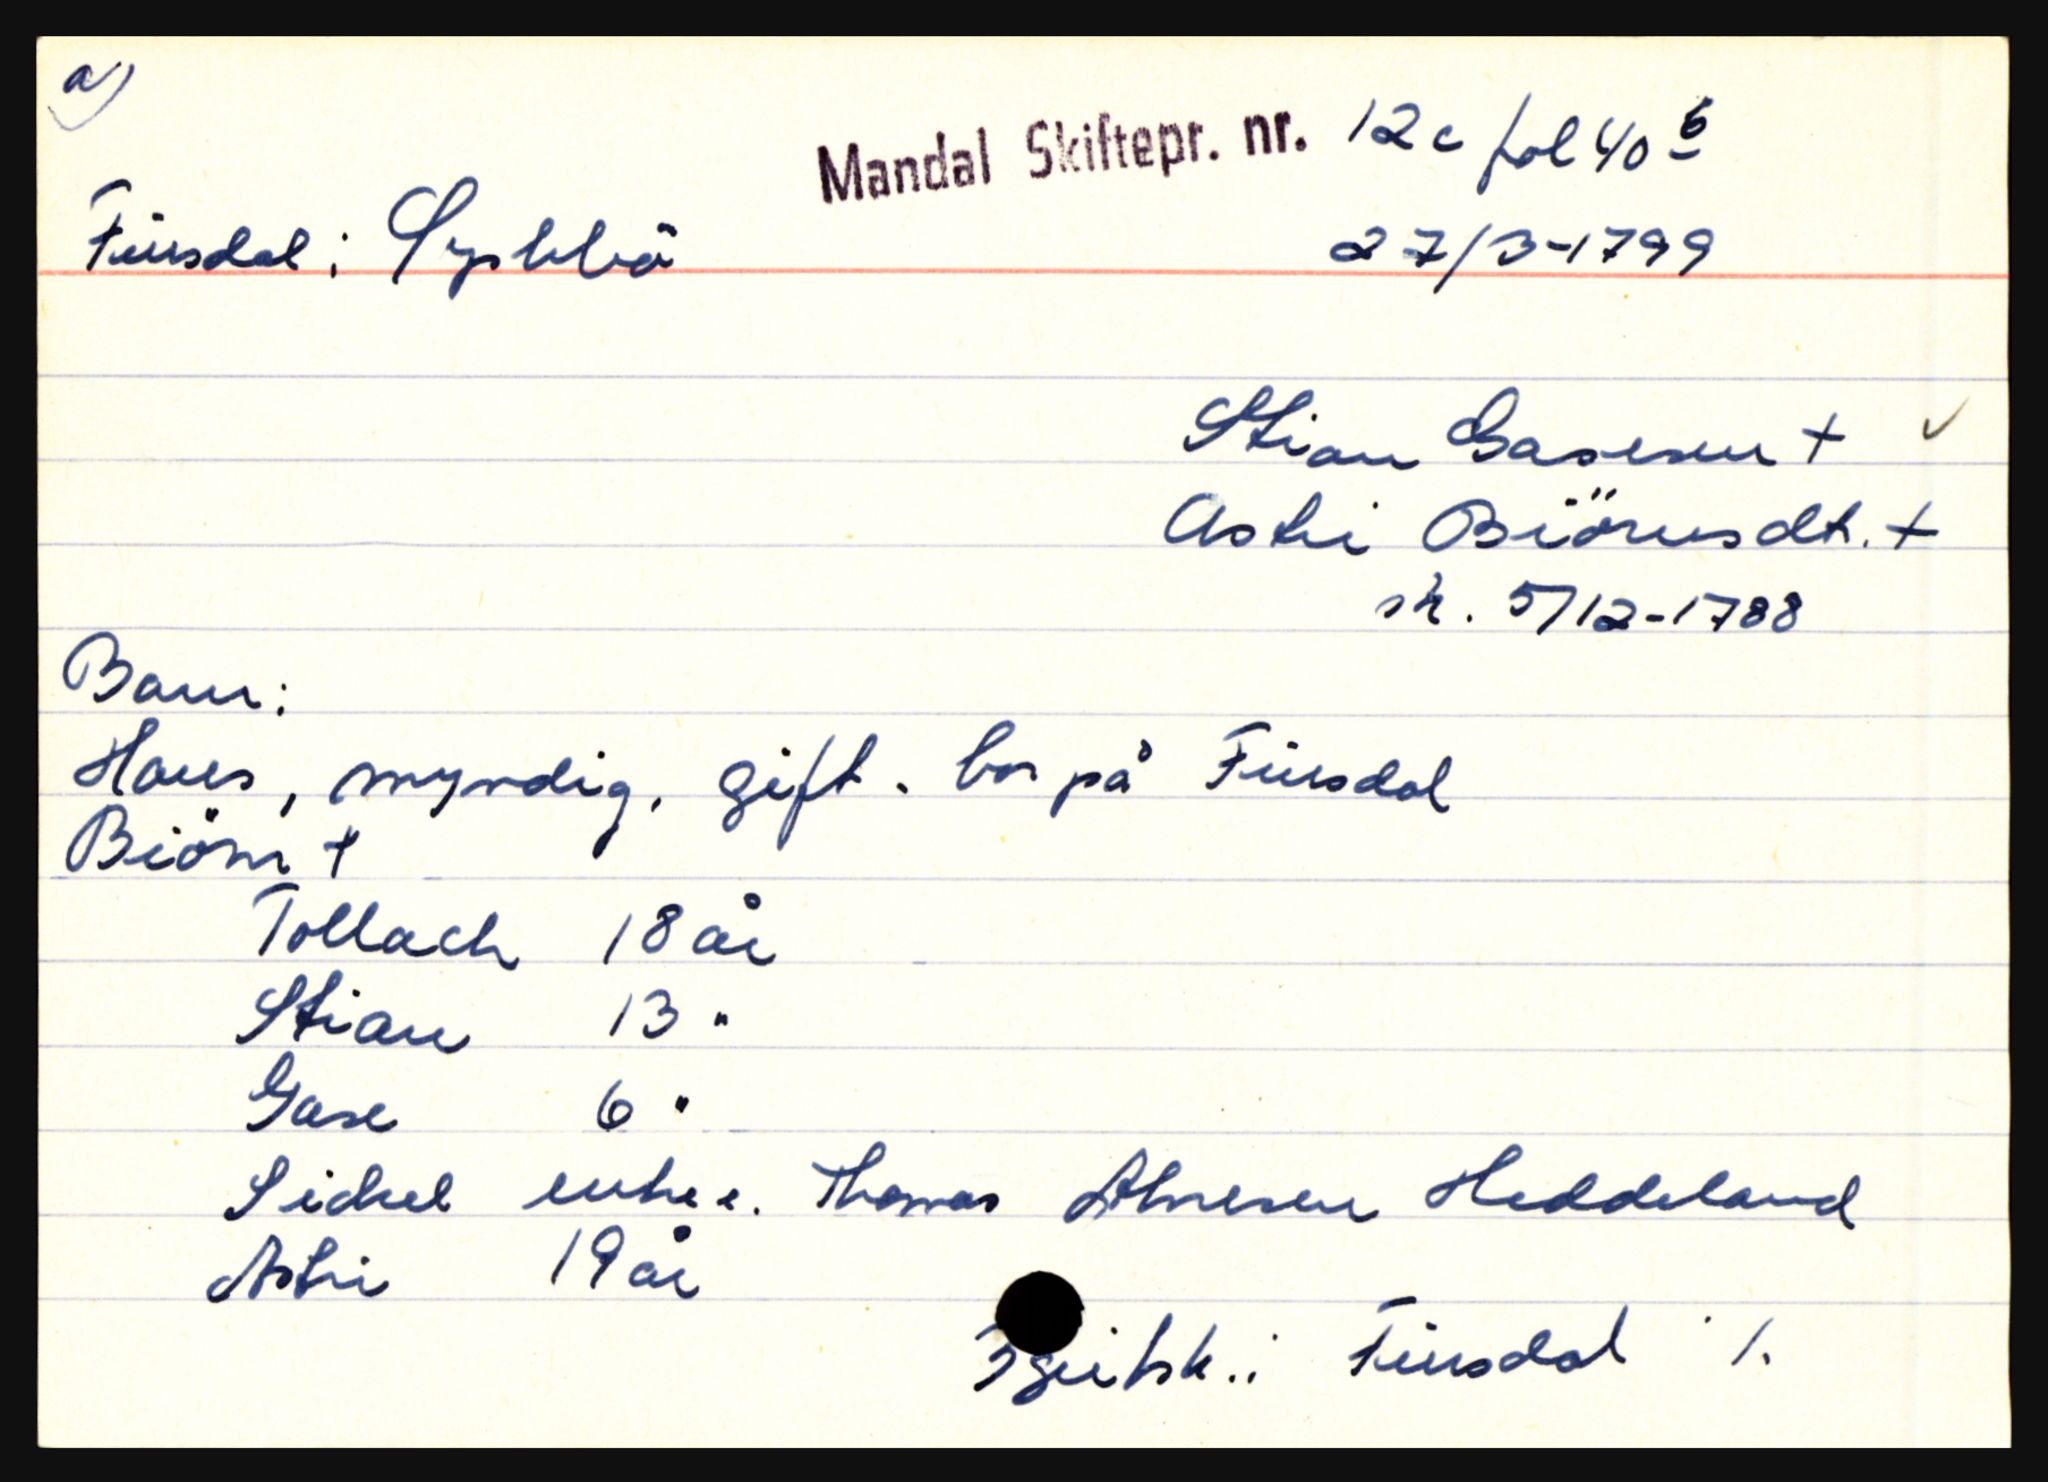 a)
Mandal Skiftepr. nr. 12c fol 40 b
Finsdal i Lyhbö 27/3-1799
Stian Gasesen + ✓
Astri Biörnsdt. +
sk. 5/12-1788
Barn:
Hans, myndig, gift. bor på Finsdal
Biörn +
Tollach 18 år
Stian 13 "
Gase 6 "
Sichel enke e. Thomas Ahnesen Heddeland
Astri 19 år
Finsdal ./.